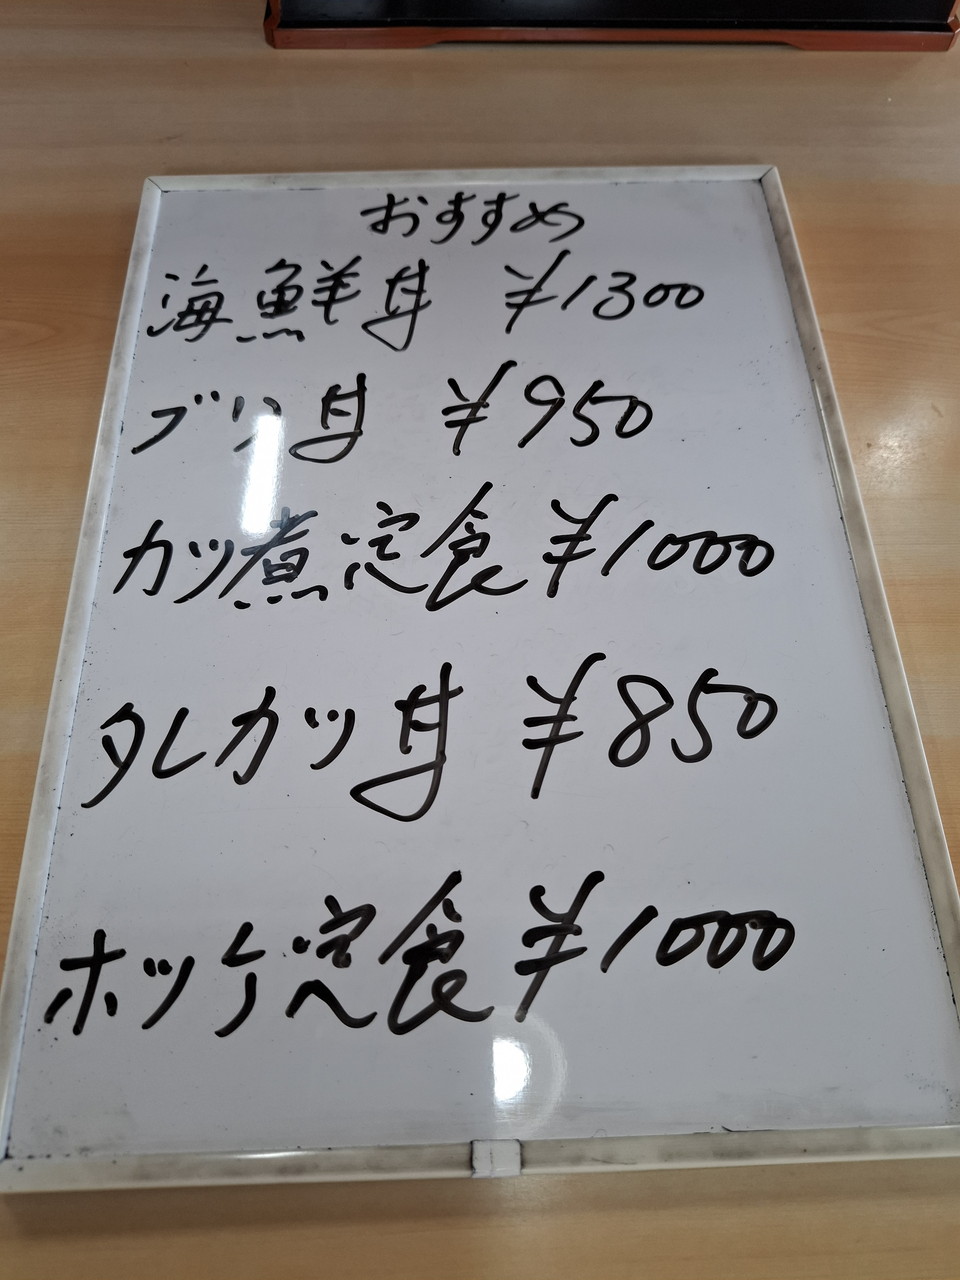 おすすめ
海鮮丼 ¥1300
ブリ丼 ¥950
カツ煮定食 ¥1000
タレカツ丼 ¥850
ホッケ定食 ¥1000